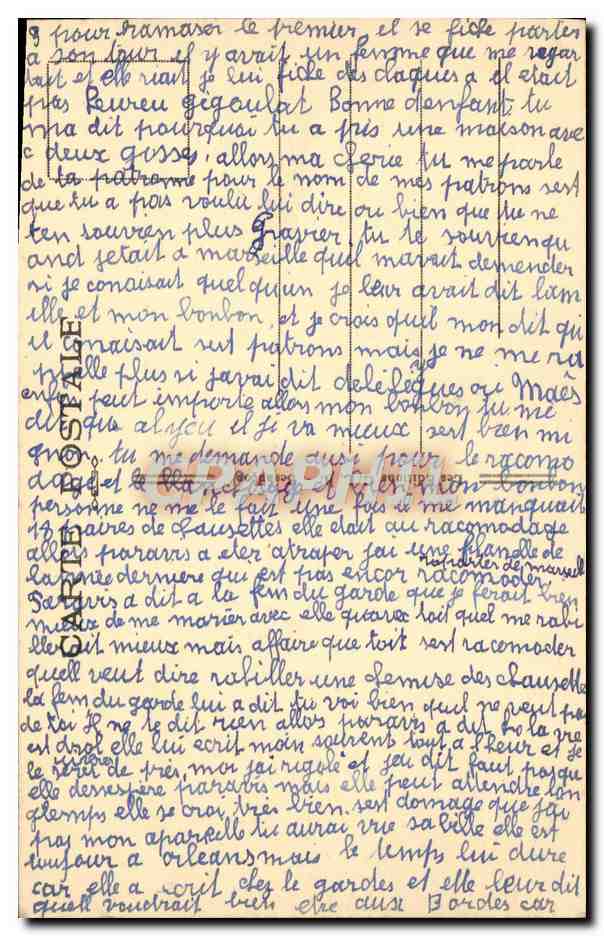 3 pour ramaser le premier et se fiche partes
a son tour il y avait un femme que me regar
dait et elle riait je lui fiche des claques a il etait
pas heureu gegoulat Bonne denfant, tu
ma dit pourquoi tu a pris une maison ave
c deux gosses, allors ma cherie tu me parle
de ta patronne pour le nom de mes patrons sest
que tu a pas voulu lui dire ou bien que tu ne
ten souvien plus Gravier, tu te souvien qu
and jetait a marseille quil mavait demender
si je conaisait quelquun je leur avait dit Cam
ille et mon bonbon, et je crois quil mon dit qu
il conaisait sest patrons mais je ne me ra
pelle plus si javai dit delélègues ou Maës
enfin peut importe allors mon bonbon tu me
dit que il ji va mieux sest bien mi
gnon, tu me demande ausi pour le racomo
dage et le mon bonbon
personne ne me le fait une fois il me manquait
18 paires de chausettes elle etait au racomodage
allors paravis a eler atraper jai une flanelle de
lannée derniere qui est pas encor racomoder,
raparler de marseill
Paravis a dit a la fem du garde que je ferait bien
mieux de me marier avec elle quavec toit quel me rabi
llerait mieux mais affaire que toit sest racomoder
quell veut dire rabiller une chemise des chausette
la fem du garde lui a dit tu voi bien quil ne veut pas
de toi il ne te dit rien allors paravis a dit o la vie
est drol elle lui ecrit moin souvent tout a lheur et je
le serret de près, moi jai rigolé et jeu dit faut pas qu
elle desespère paravis mais elle peut attendre lon
glemps elle se croi très bien sest domage que jai
pas mon apareille tu aurai vue sa bille elle est
toujour a orleans mais le temps lui dure
car elle a ecrit chez le gardes et elle leur dit
quell voudrait bien etre aux Bordes car
CARTE POSTALE